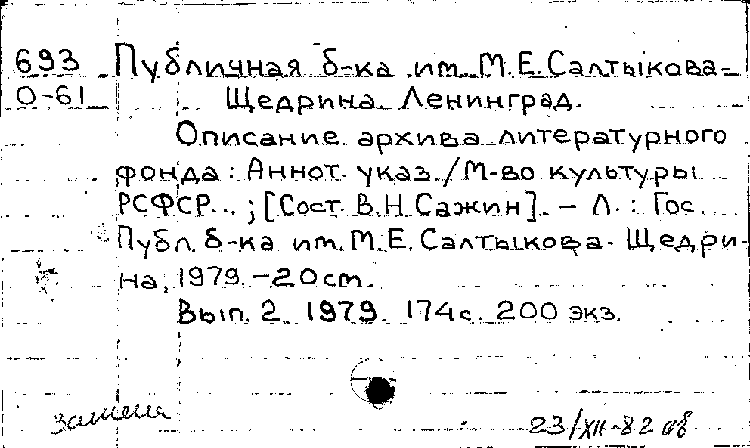 693 Публичная б-ка им. М.Е. Салтыкова-
О-61 Щедрина. Ленинград.
Описание архива литературного
фонда: Аннот. указ./М-во культуры
РСФСР...; [Сост. В.Н. Сажин]. – Л.: Гос.
Публ. б-ка им. М.Е. Салтыкова-Щедри-
на, 1979. – 20 cm.
Вып. 2. 1979. 174 с. 200 экз.
замена
23/XII-82